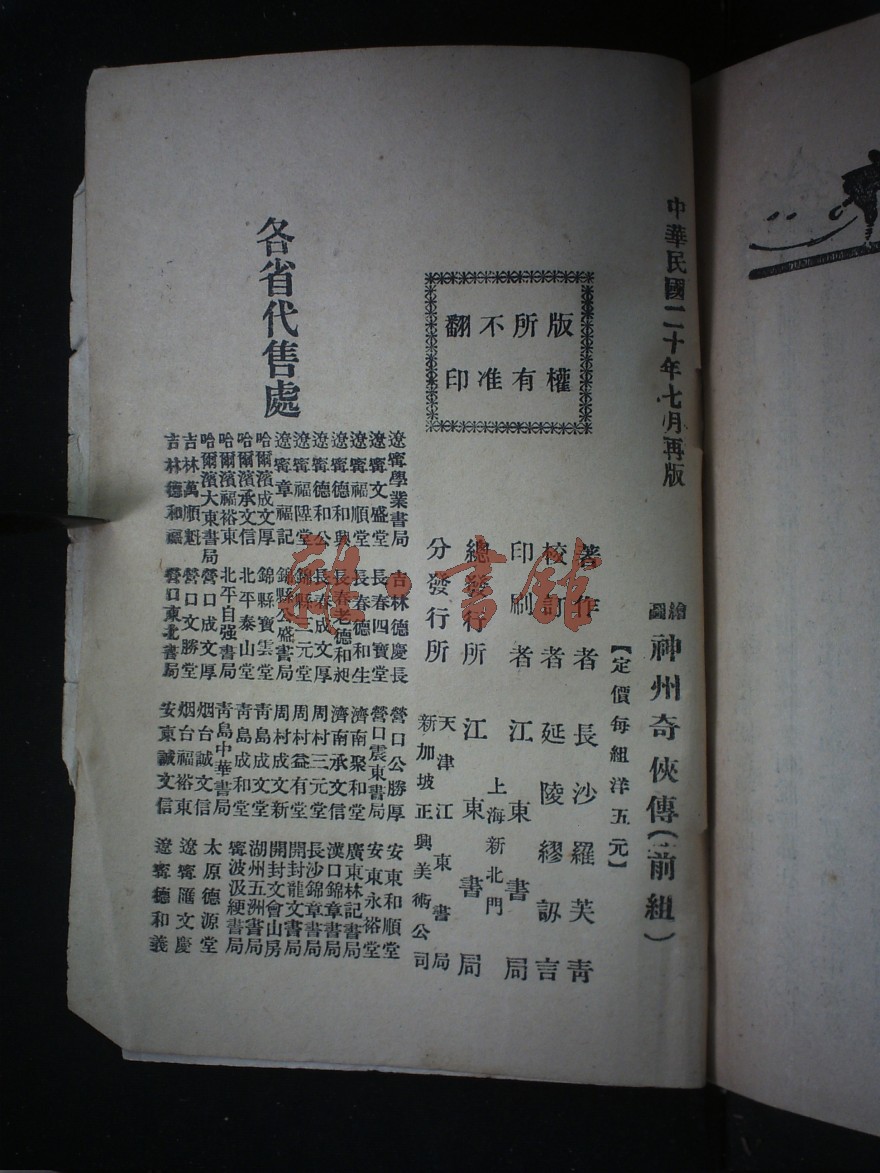 中華民國二十年七月再版
繪圖神州奇俠傳(前組)
【定價每組洋五元】
版權
所有
不准
翻印
著作者 長沙羅芙青
校訂者 延陵繆詡言
印刷者 江東書局
總發行所 上海新北門 江東書局
分發行所 天津江東書局
新加坡正興美術公司
各省代售處
遼寗學業書局 吉林德慶長 營口公勝厚 安東和順堂
遼寗文盛堂 長春四寶堂 營口震東書局 安東永裕堂
遼寗福順堂 長春德和生 濟南聚和堂 廣東林記書局
遼寗德和興 長春老德和昶 濟南承文信 漢口錦章書局
遼寗德和公 長春成文厚 周村三元堂 長沙錦章書局
遼寗福陞堂 錦縣三元堂 周村益有堂 開封龍文書局
遼寗章福記 錦縣公盛書局 周村成文新 開封文會山房
哈爾濱成文厚 錦縣寶雲堂 靑島成文堂 湖州五洲書局
哈爾濱承文信 北平泰山堂 靑島成和堂 寗波汲綆書局
哈爾濱福裕東 北平自强書局 靑島中華書局 太原德源堂
哈爾濱大東書局 營口成文厚 烟台誠文信 遼寗匯文慶
吉林萬順魁 營口文勝堂 烟台福裕東 遼寗德和義
吉林德和福 營口東北書局 安東誠文信
雜·書館